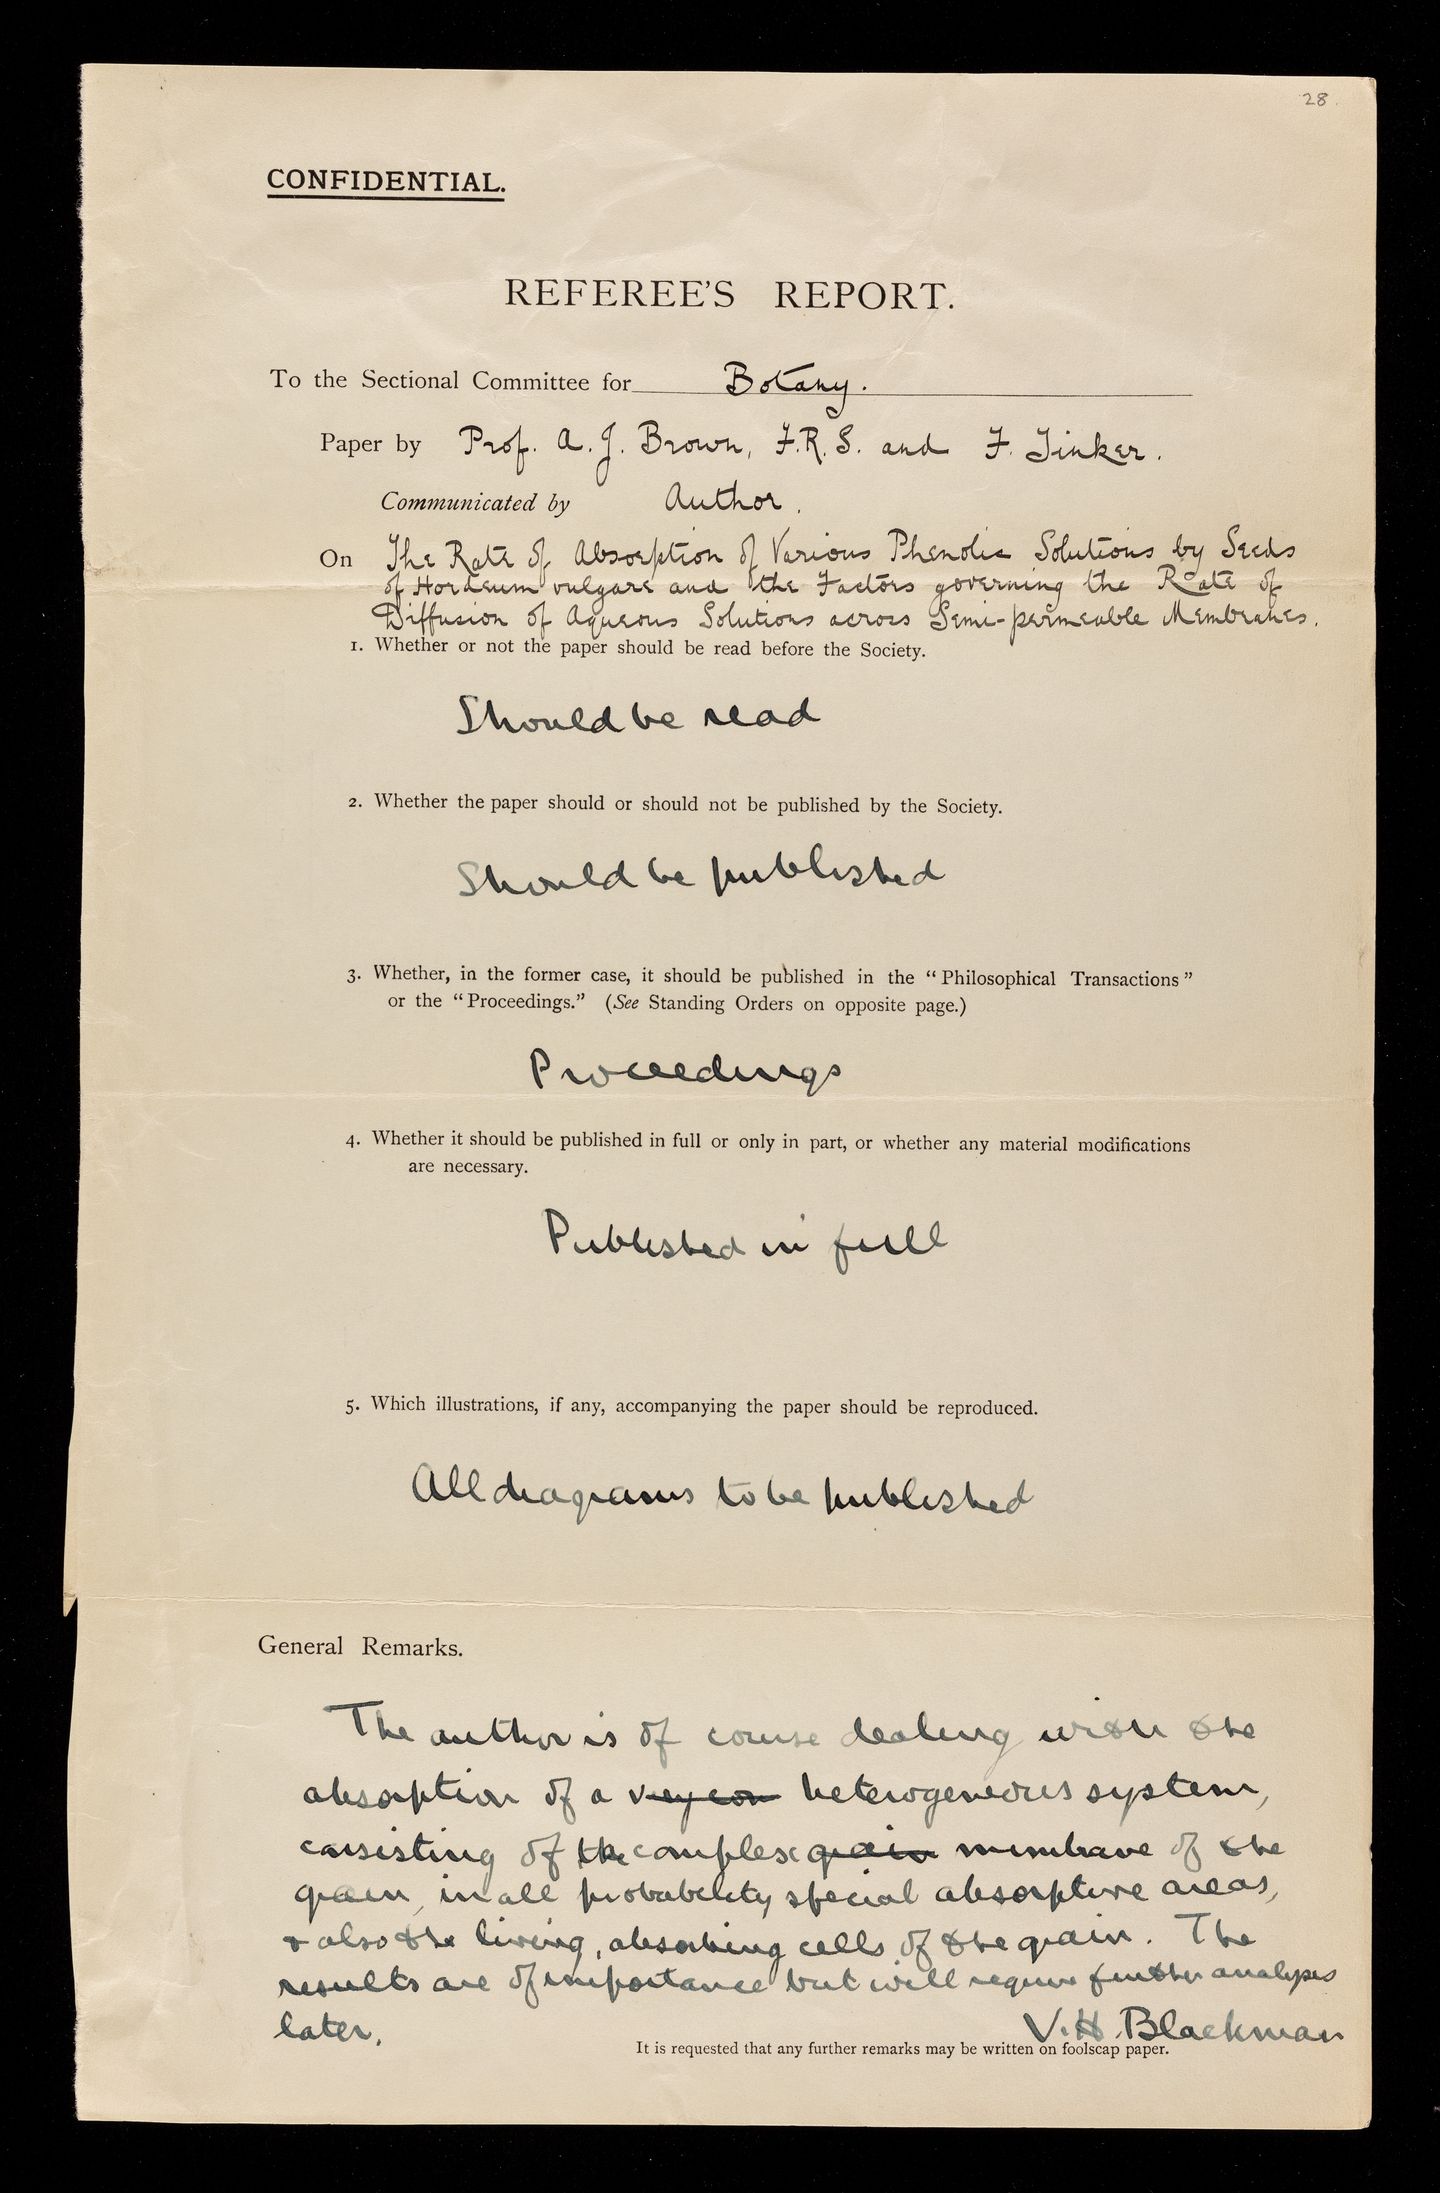 28.
CONFIDENTIAL.
REFEREE'S REPORT.
To the Sectional Committee for Botany.
Paper by Prof. A. J. Brown, F.R.S. and F. Tinker.
Communicated by Author.
On The Rate of Absorption of Various Phenolic Solutions by Seeds
of Hordeum vulgare and the Factors governing the Rate of
Diffusion of Aqueous Solutions across Semi-permeable Membranes.
1. Whether or not the paper should be read before the Society.
Should be read
2. Whether the paper should or should not be published by the Society.
Should be published
3. Whether, in the former case, it should be published in the "Philosophical Transactions"
or the "Proceedings." (See Standing Orders on opposite page.)
Proceedings
4. Whether it should be published in full or only in part, or whether any material modifications
are necessary.
Published in full
5. Which illustrations, if any, accompanying the paper should be reproduced.
All diagrams to be published
General Remarks.
The author is of course dealing with the
absorption of a very com heterogeneous system,
consisting of the complex grain membrane of the
grain, in all probability special absorptive areas,
& also the living, absorbing cells of the grain. The
results are of importance but will require further analysis
later. V. H. Blackman
It is requested that any further remarks may be written on foolscap paper.